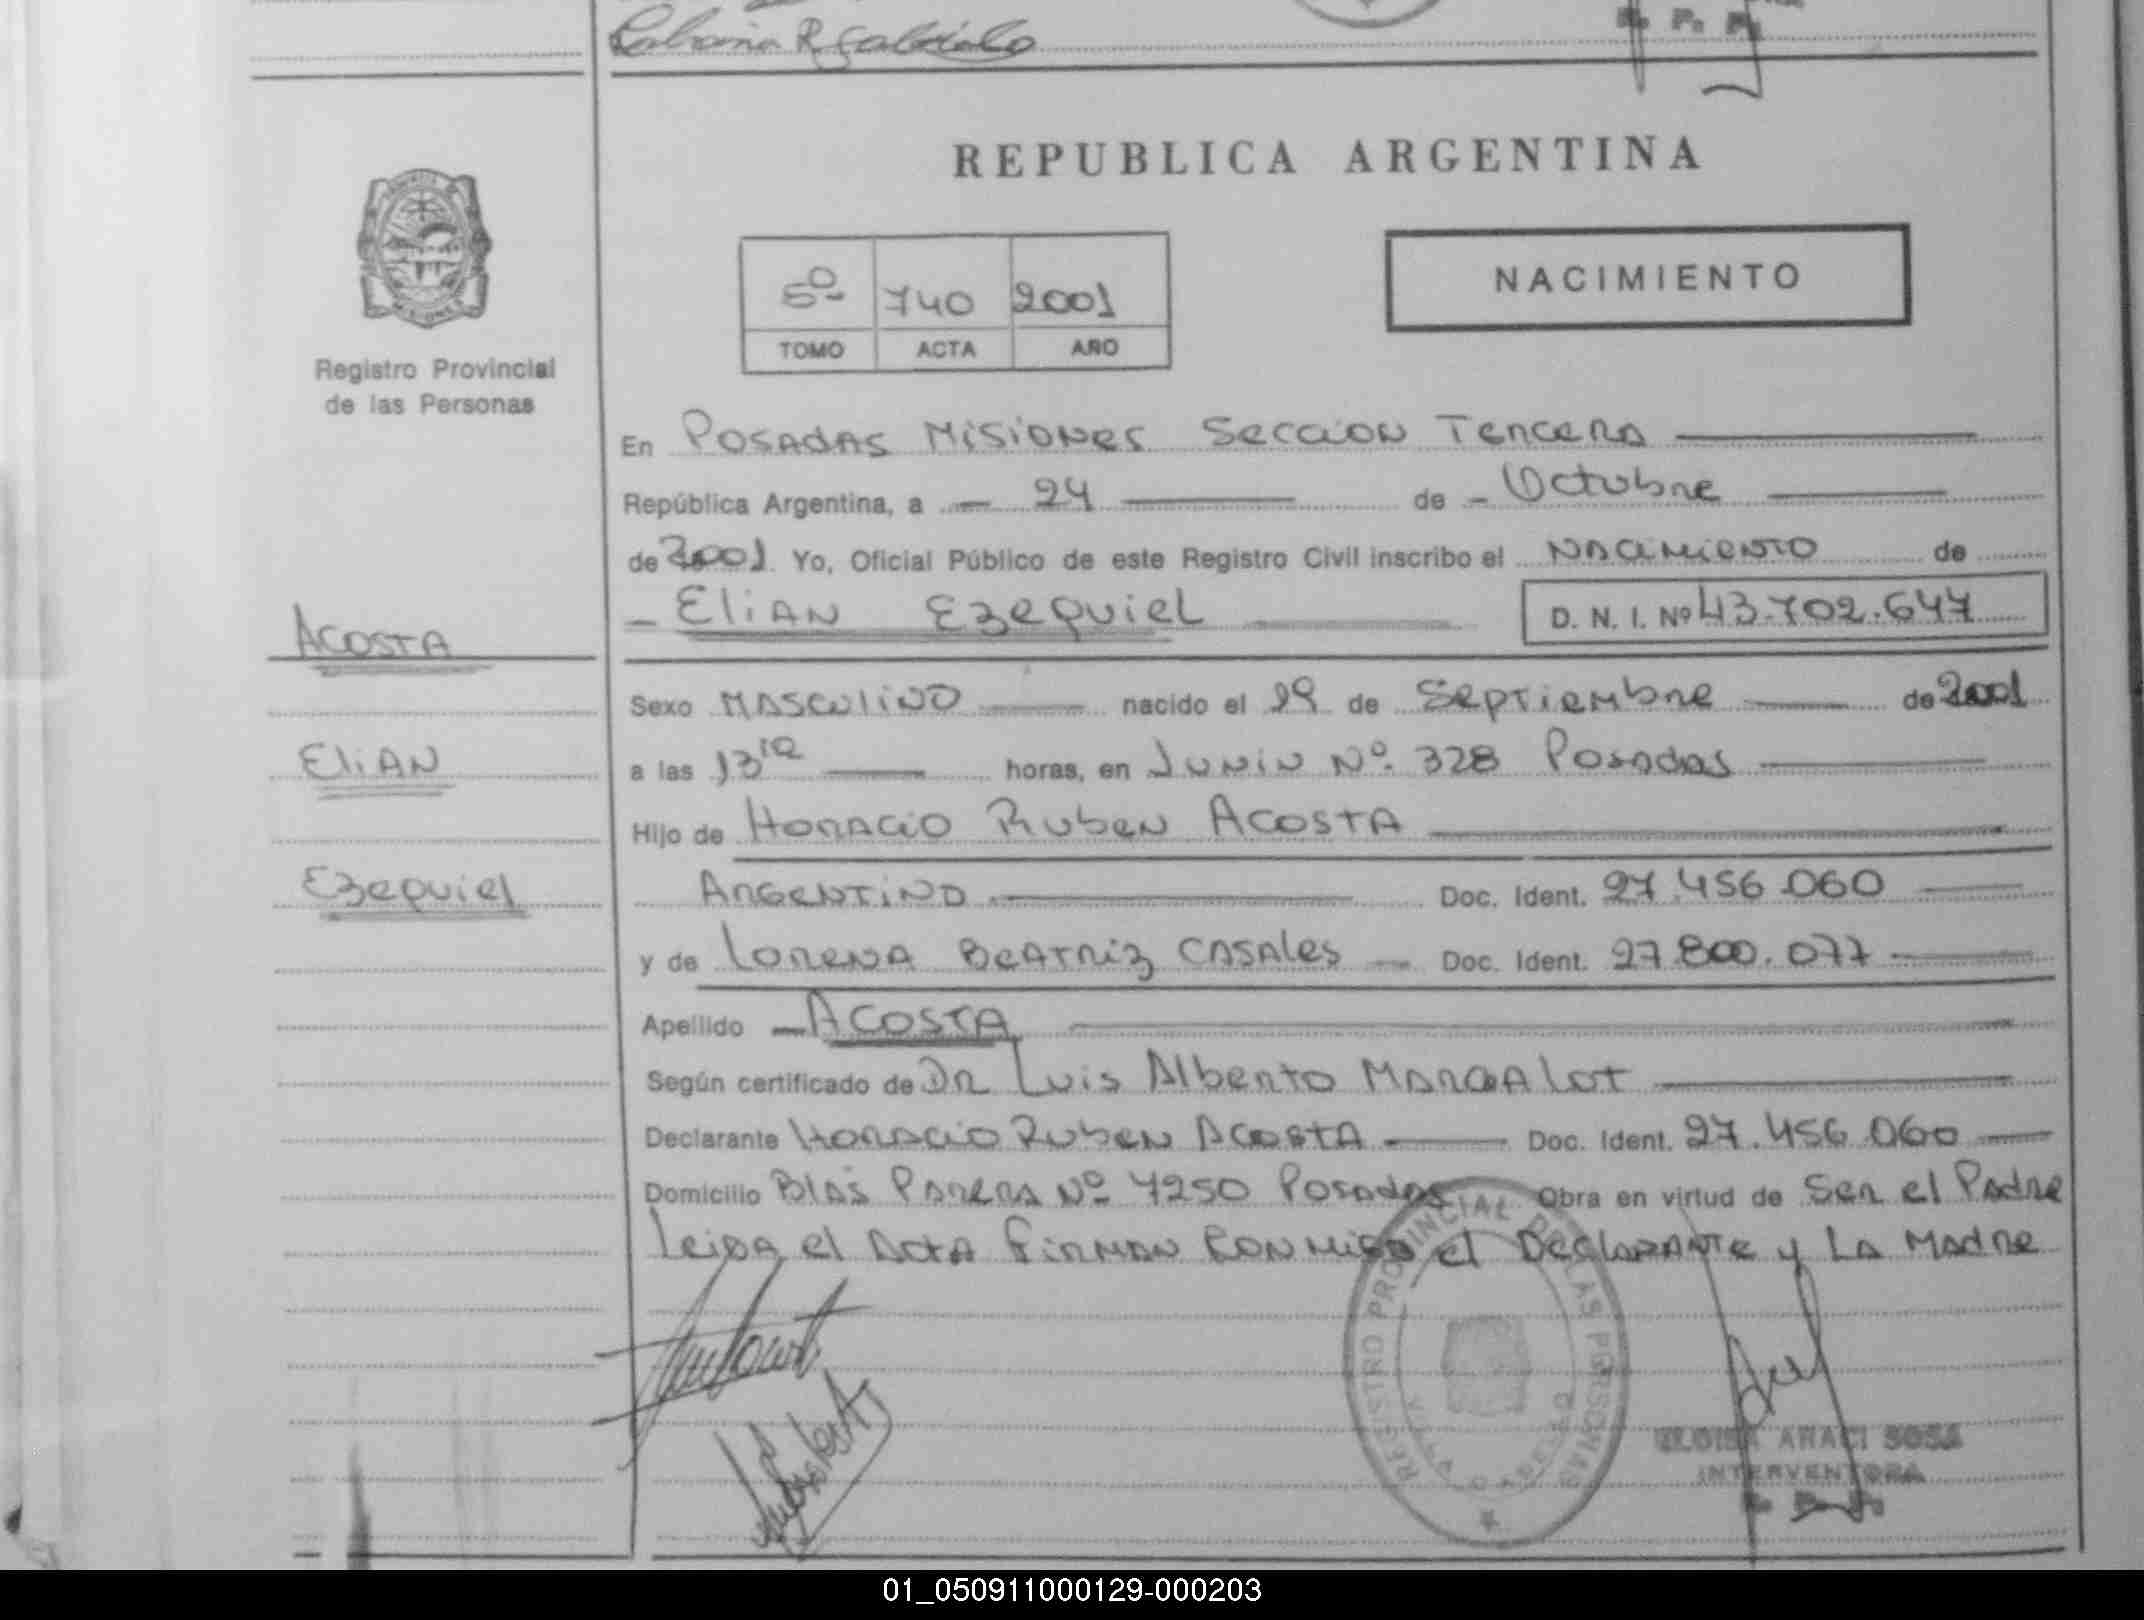 REPUBLICA ARGENTINA
5º 740 2001
TOMO ACTA AÑO
NACIMIENTO
Registro Provincial
de las Personas
En Posadas Misiones Seccion Tercera
República Argentina, a 24 de Octubre
de 2001 Yo, Oficial Público de este Registro Civil inscribo el Nacimiento de
Elian Ezequiel D. N. I. Nº 43.702.647
Acosta
Elian
Ezequiel
Sexo Masculino nacido el 29 de Septiembre de 2001
a las 13 horas, en Junin Nº 328 Posadas
Hijo de Horacio Ruben Acosta
Argentino Doc. Ident. 27.456.060
y de Lorena Beatriz Casales Doc. Ident. 27.800.077
Apellido Acosta
Según certificado de Dr Luis Alberto
Declarante Horacio Ruben Acosta Doc. Ident. 27.456.060
Domicilio Blas Parera Nº 7250 Posadas Obra en virtud de Ser el Padre
Leida el Acta Firman Conmigo el Declarante y La Madre
REGISTRO PROVINCIAL DE LAS PERSONAS
ELOISA ARACI SOSA
INTERVENTORA
01_050911000129-000203